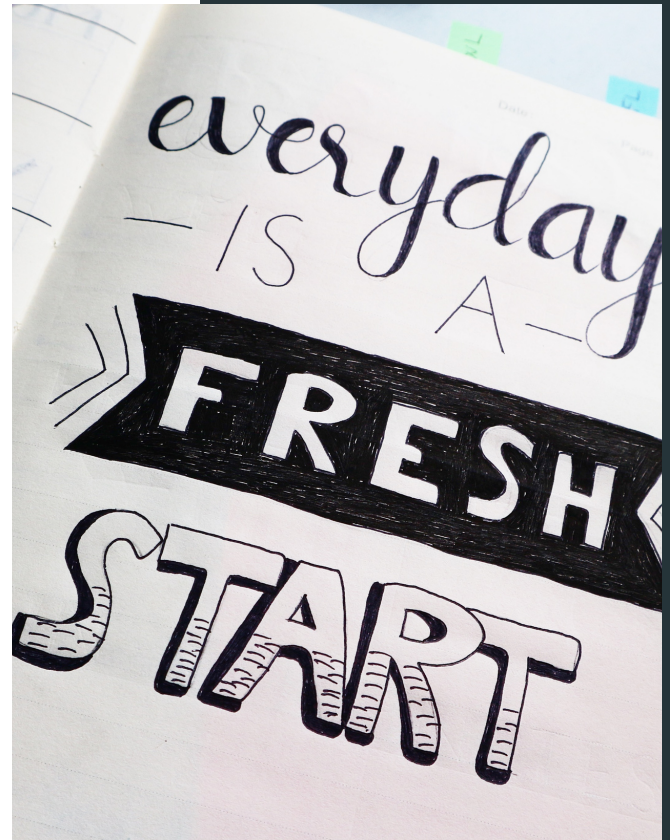 Date
Page
everyday
— IS A —
FRESH
START